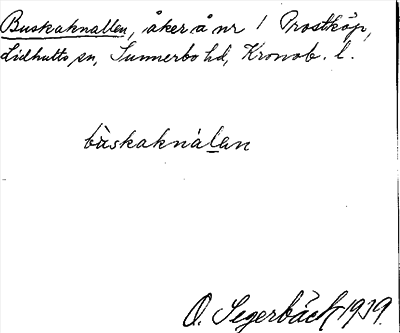 Buskaknallen, åker å nr 1 Prostköp,
Lidhults sn, Sunnerbo hd, Kronob. l.
bùskaknálan
O. Segerbäck 1919.